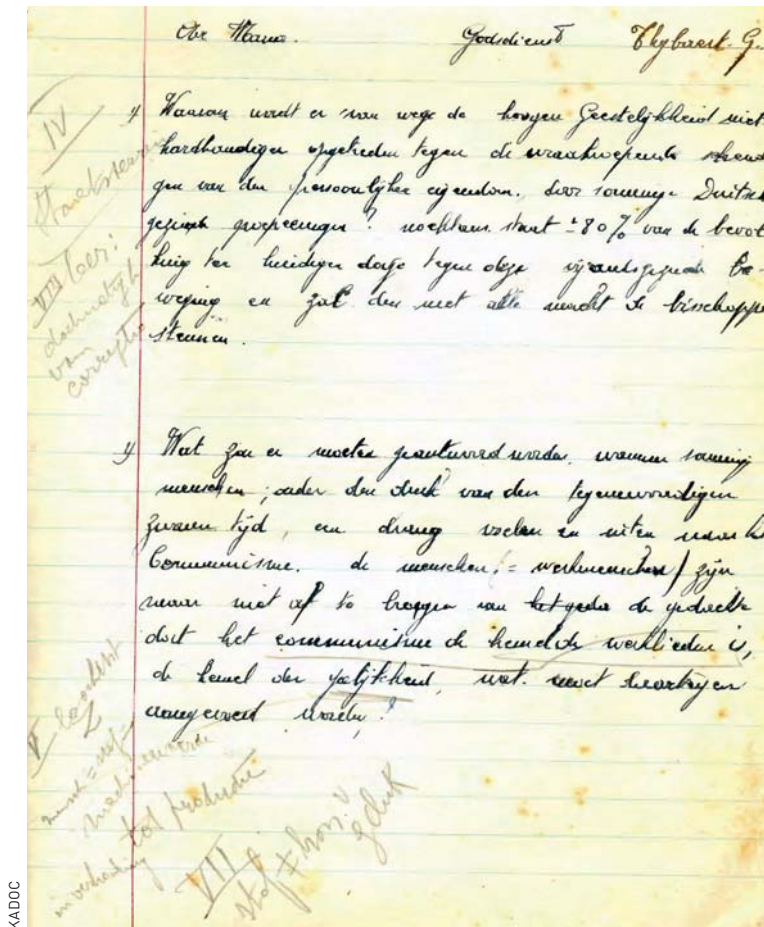 Godsdienst Thybaert. G.
1) Waarom wordt er van wege de hoogen Geestelijkheid niet
hardhandiger opgetreden tegen de wraakroepende schend
gen van den persoonlijken eigendom, door sommige Duitsch
gezinde groepeeringen? nochtans staat ± 80% van de bevol
king ten huidigen dage tegen deze vijandsgezinde be-
weging en zal dus met alle macht de bisschoppe
steunen.
Wat zou er moeten geantwoord worden, wanneer sommige
menschen, onder den druk van den tegenwoordigen
zwaren tijd, een drang voelen en uiten naar het
Communisme. de menschen (= werkmenschen) zijn
maar niet af te brengen van het gedac de gedachte
dat het communisme de hemel der werklieden is,
de hemel der gelijkheid, wat moet daartegen
aangevoerd worden?
IV
VIII leer:
van
V
tot productie
VII
stof
KADOC